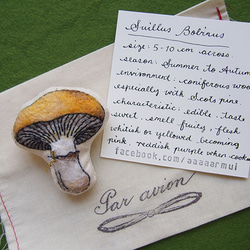 Suillus Bobinus
size: 5-10 cm across
season: Summer to Autumn
environment: coniferous woo
especially with Scots pins
characteristic: edible. Tasts
sweet. smell fruity, flesh
whitish or yellowed becoming
pink, reddish purple when cooked
facebook.com/aaaaarmui
Par avion